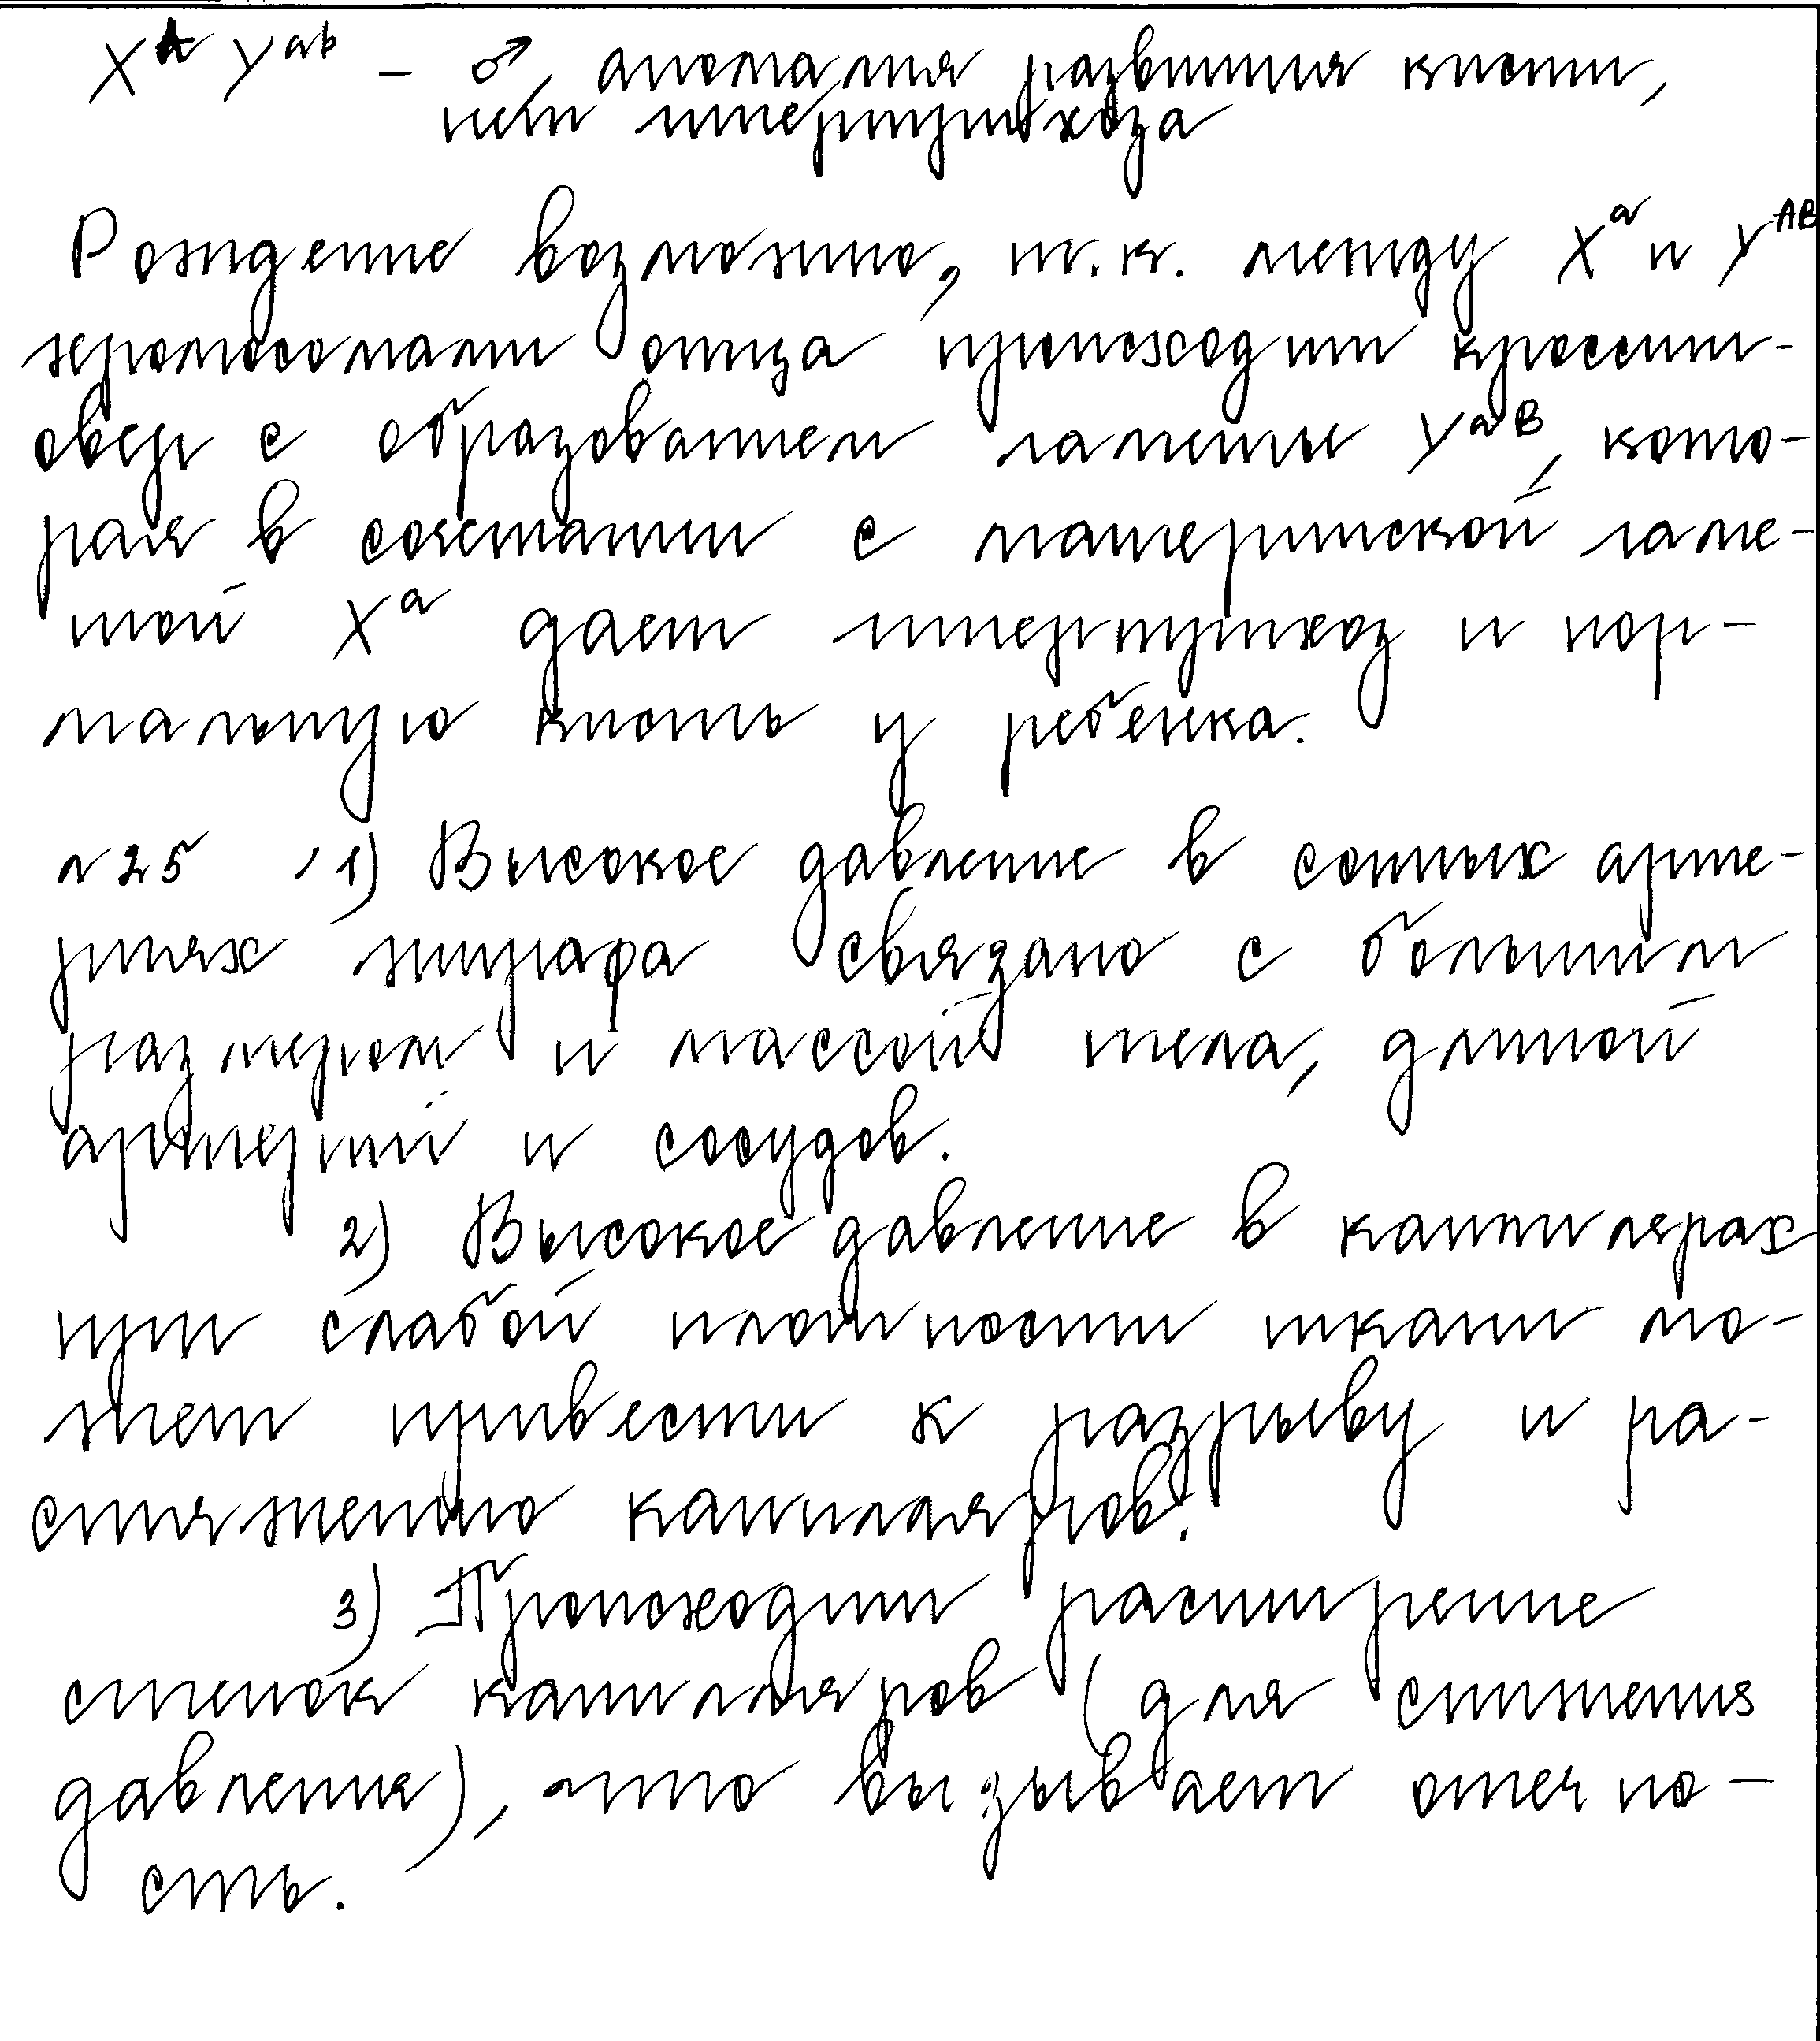 X^A Y^ab – ♂, аномалия развития кисти,
нет гипертрихоза
Рождение возможно, т.к. между X^a и Y^AB
хромосомами отца происходит кроссинг-
овер с образованием гаметы Y^aB, кото-
рая в сочетании с материнской гаме-
той X^a дает гипертрихоз и нор-
мальную кисть у ребенка.
№25 1) Высокое давление в сонных арте-
риях жирафа связано с большим
размером и массой тела, длиной
артерий и сосудов.
2) Высокое давление в капилярах
при слабой плотности ткани мо-
жет привести к разрыву и ра-
стяжению капилляров.
3) Происходит расширение
стенок капилляров (для снижения
давления), что вызывает отечно-
сть.